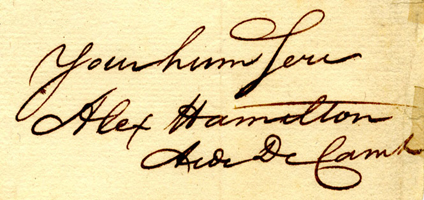 Your hum Serv
Alex Hamilton
Aide De Camp